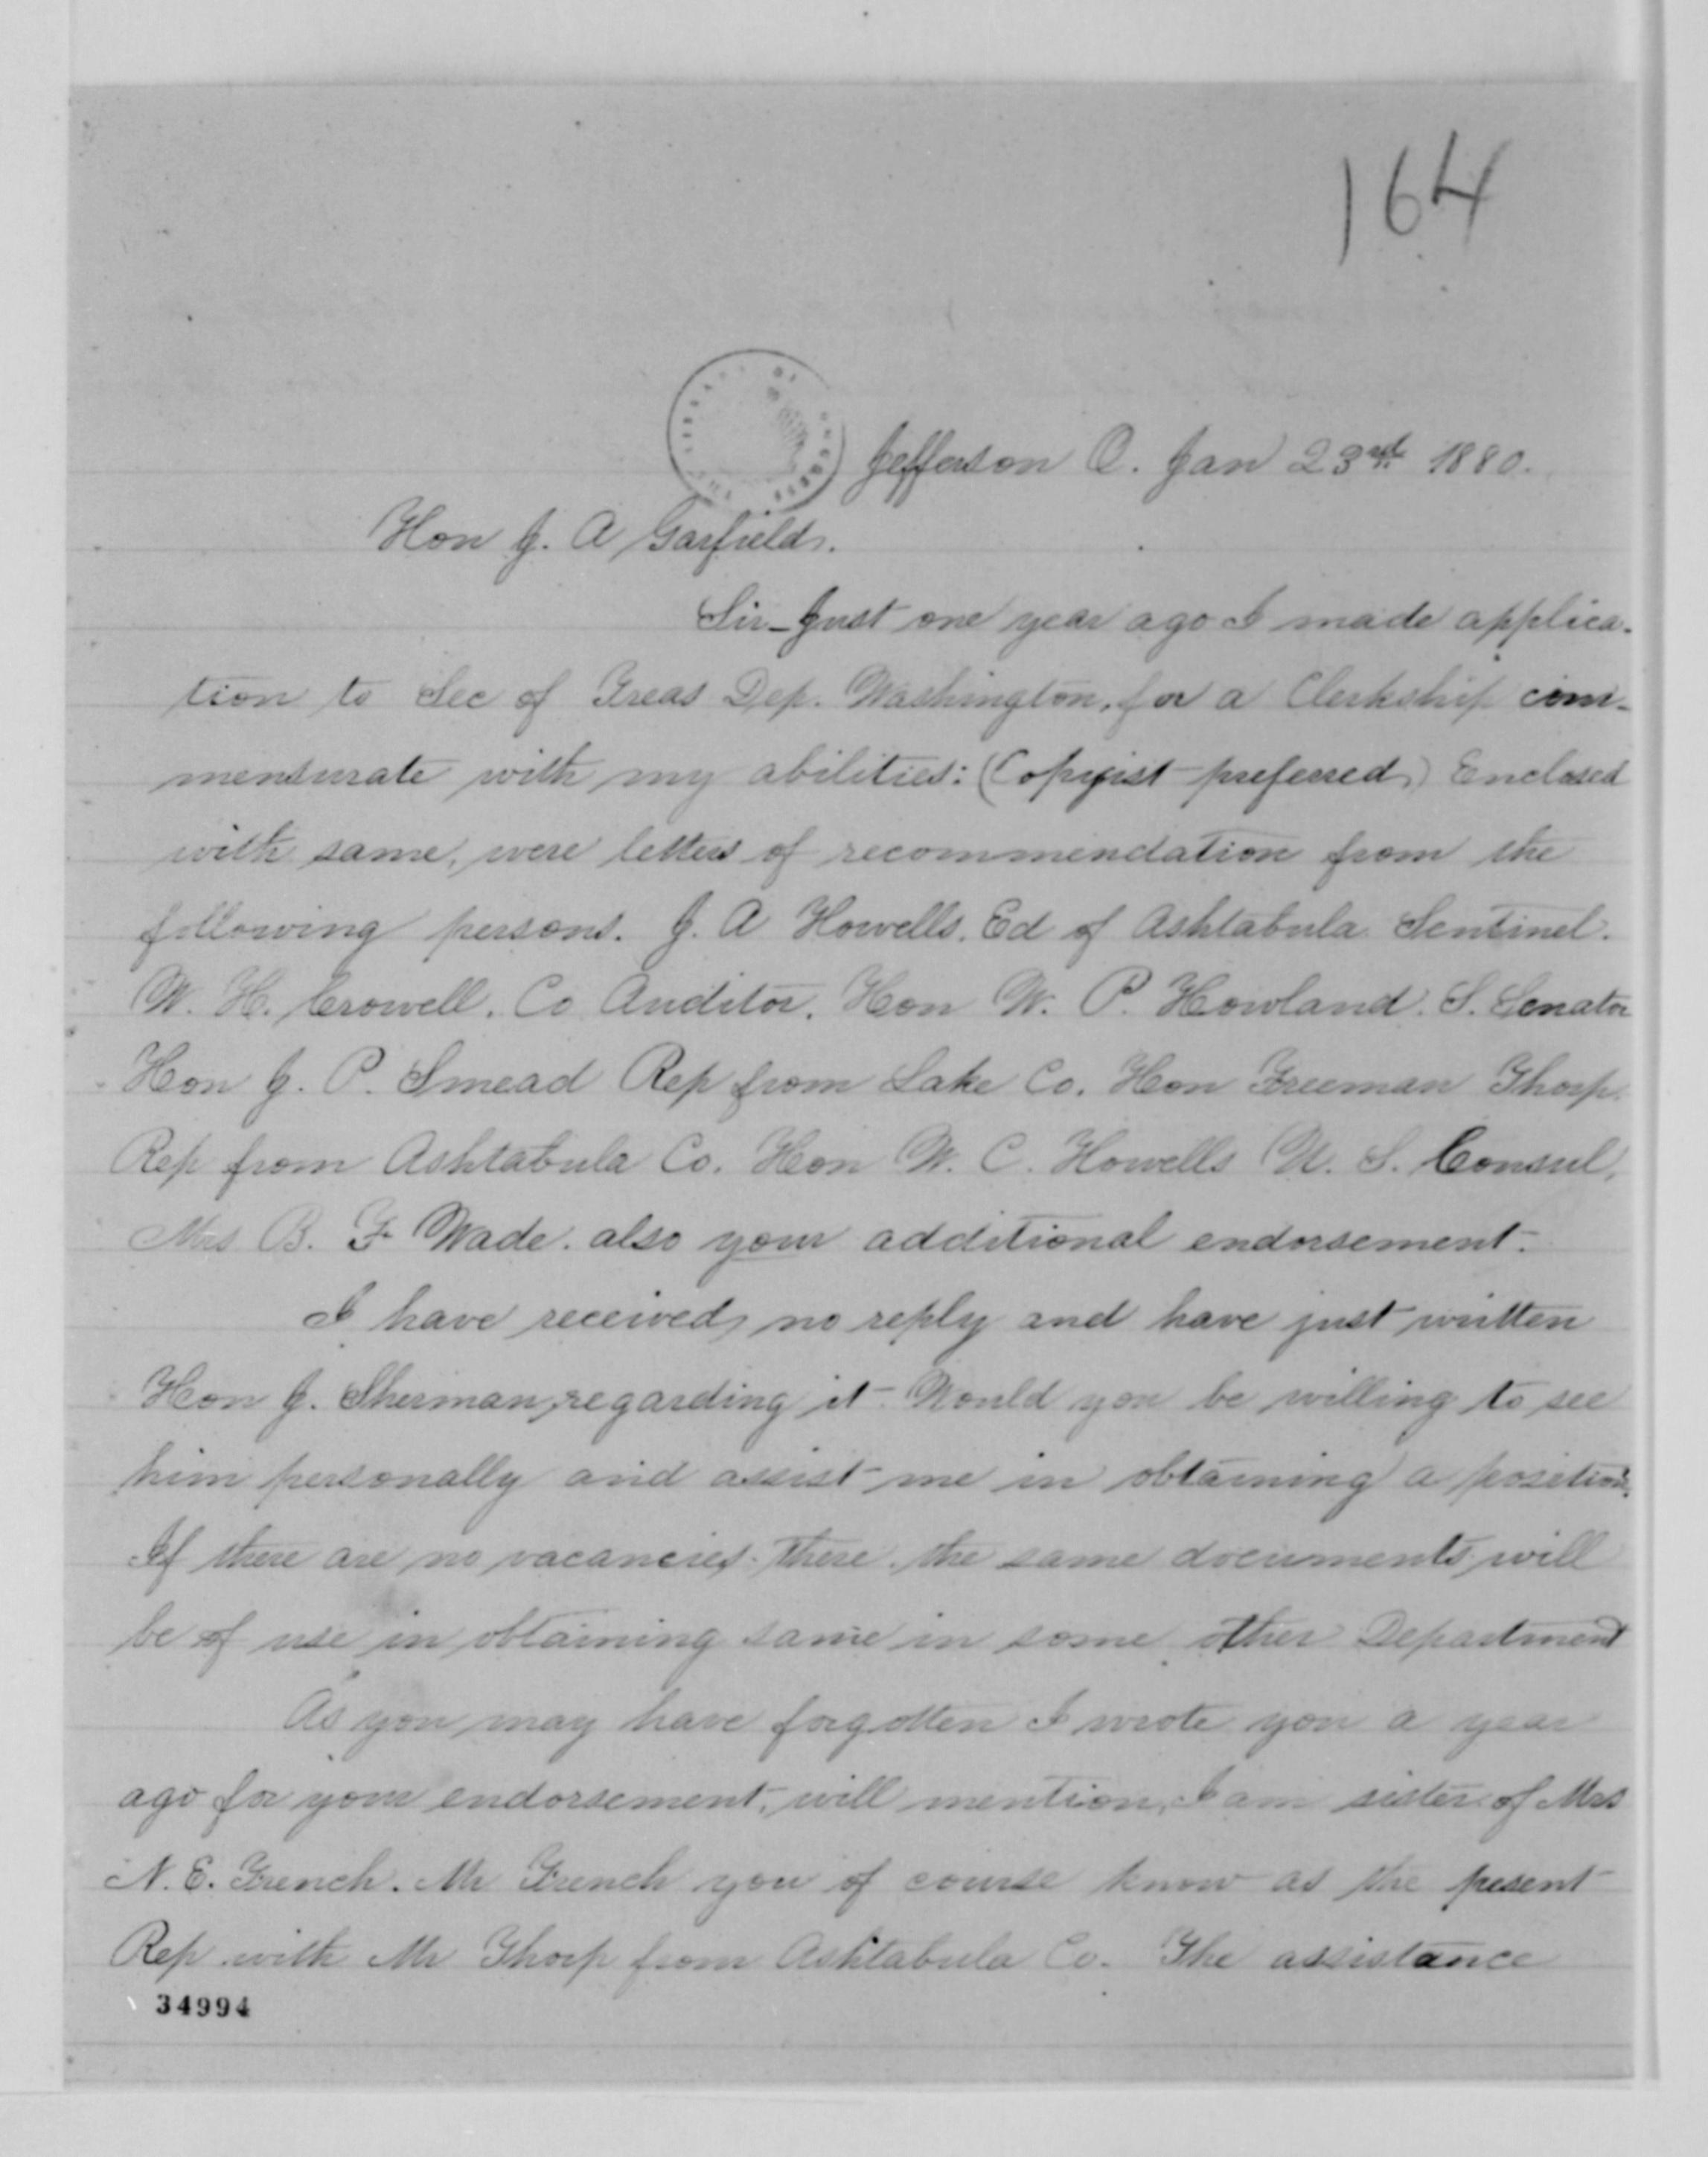 164
Jefferson O. Jan 23rd 1880.
Hon J. A Garfield.
Sir - Just one year ago I made applica-
tion to Sec of Treas Dep. Washington, for a Clerkship com-
mensurate with my abilities: (Copyist preferred) Enclosed
with same, were letters of recommendation from the
following persons. J. A Howells. Ed of Ashtabula Sentinel.
W. H. Crowell. Co Auditor. Hon W. P. Howland. S. Senator
Hon J. P. Smead Rep from Lake Co. Hon Freeman Thorp.
Rep from Ashtabula Co. Hon W. C. Howells U. S. Consul.
Mrs B. F Wade. also your additional endorsement.
I have received no reply and have just written
Hon J. Sherman, regarding it - Would you be willing to see
him personally and assist me in obtaining a position.
If there are no vacancies there the same documents will
be of use in obtaining same in some other Department
As you may have forgotten I wrote you a year
ago for your endorsement, will mention, I am sister of Mrs
N. E. French. Mr French you of course know as the present
Rep with Mr Thorp from Ashtabula Co. The assistance
34994